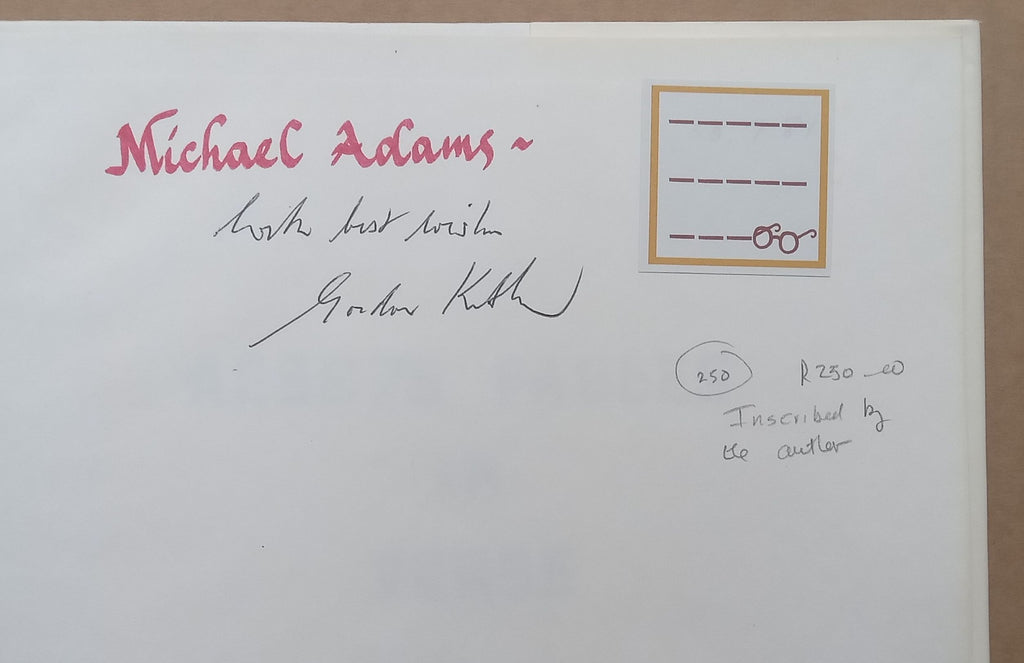 Michael Adams ~
With best wishes
Gordon
250 R250-00
Inscribed by
the author